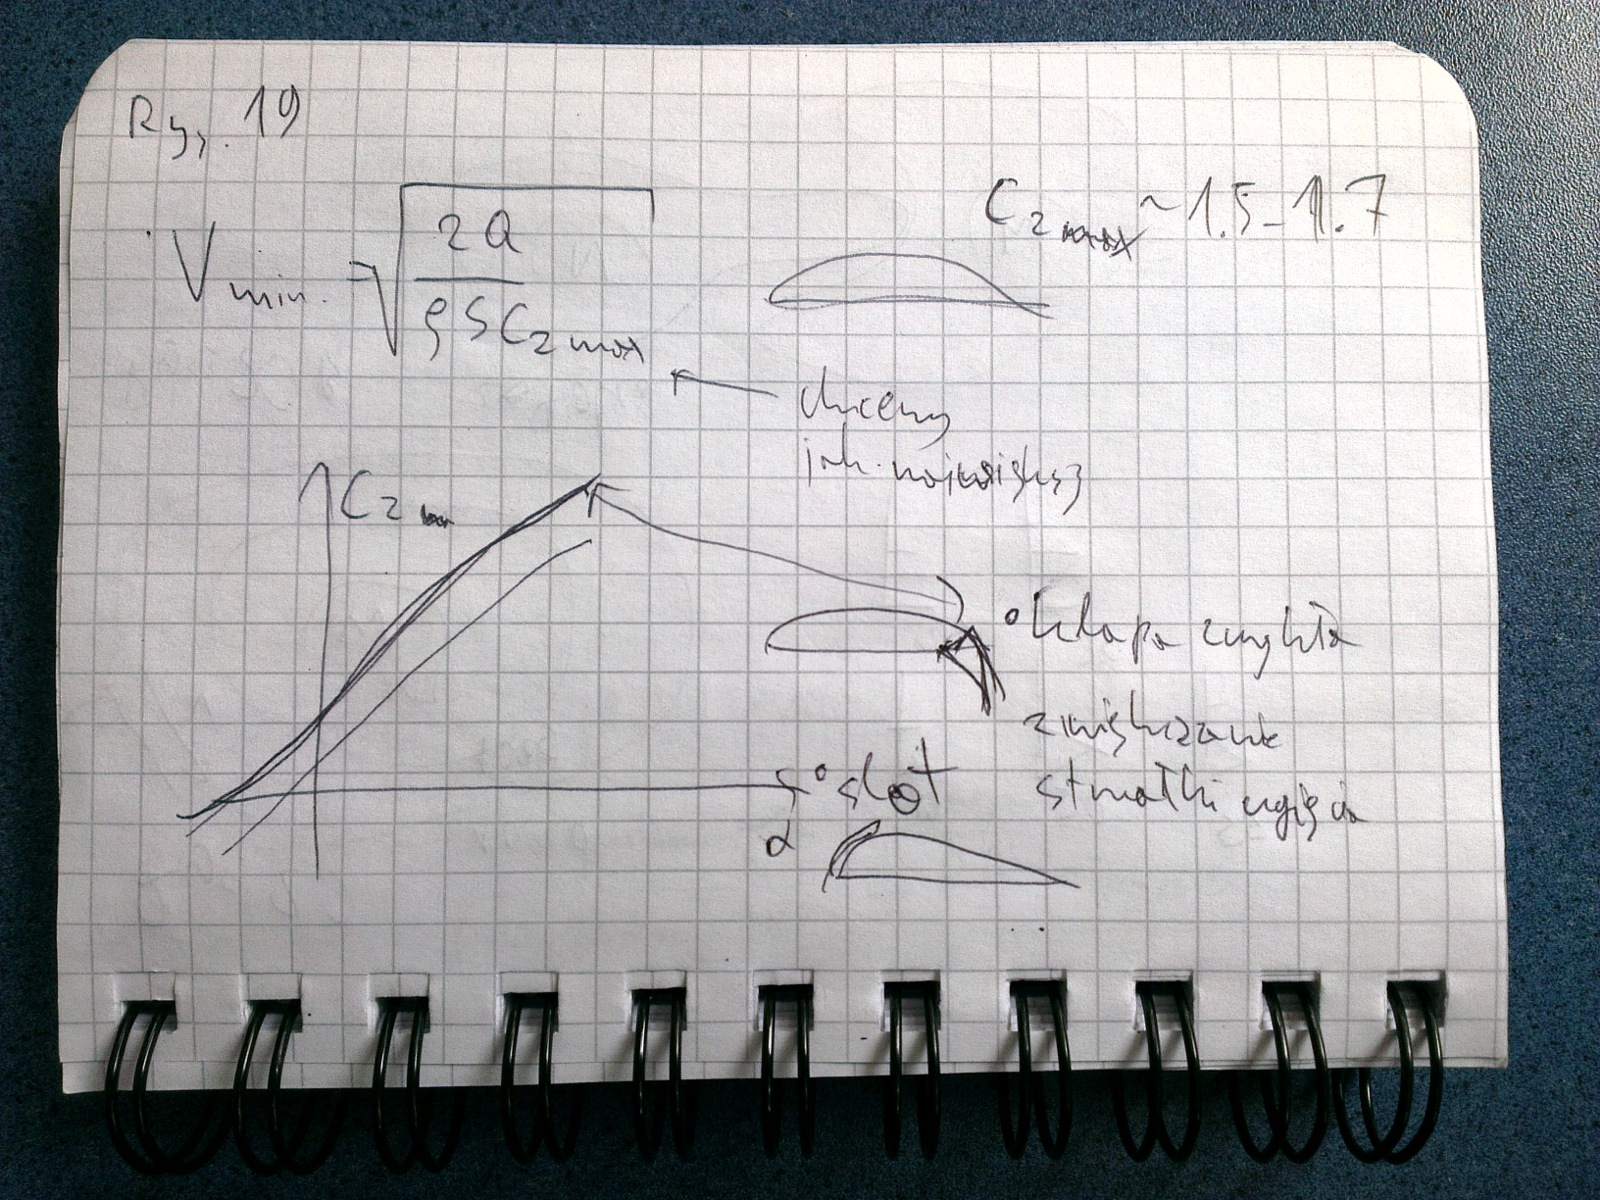 Rys. 19
Vmin. = √(2Q / ρSCzmax)
Czmax ~ 1.5-1.7
chcemy
jak największy
Cz
° klapa zwykła
zwiększanie
strzałki ugięcia
° slot
α